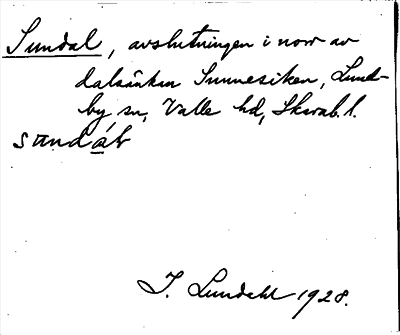 Sundal, avslutningen i norr av
dalsänkan Sunnesiken, Lund-
by sn, Valle hd, Skarab. l.
sundáł
I. Lundahl 1928.